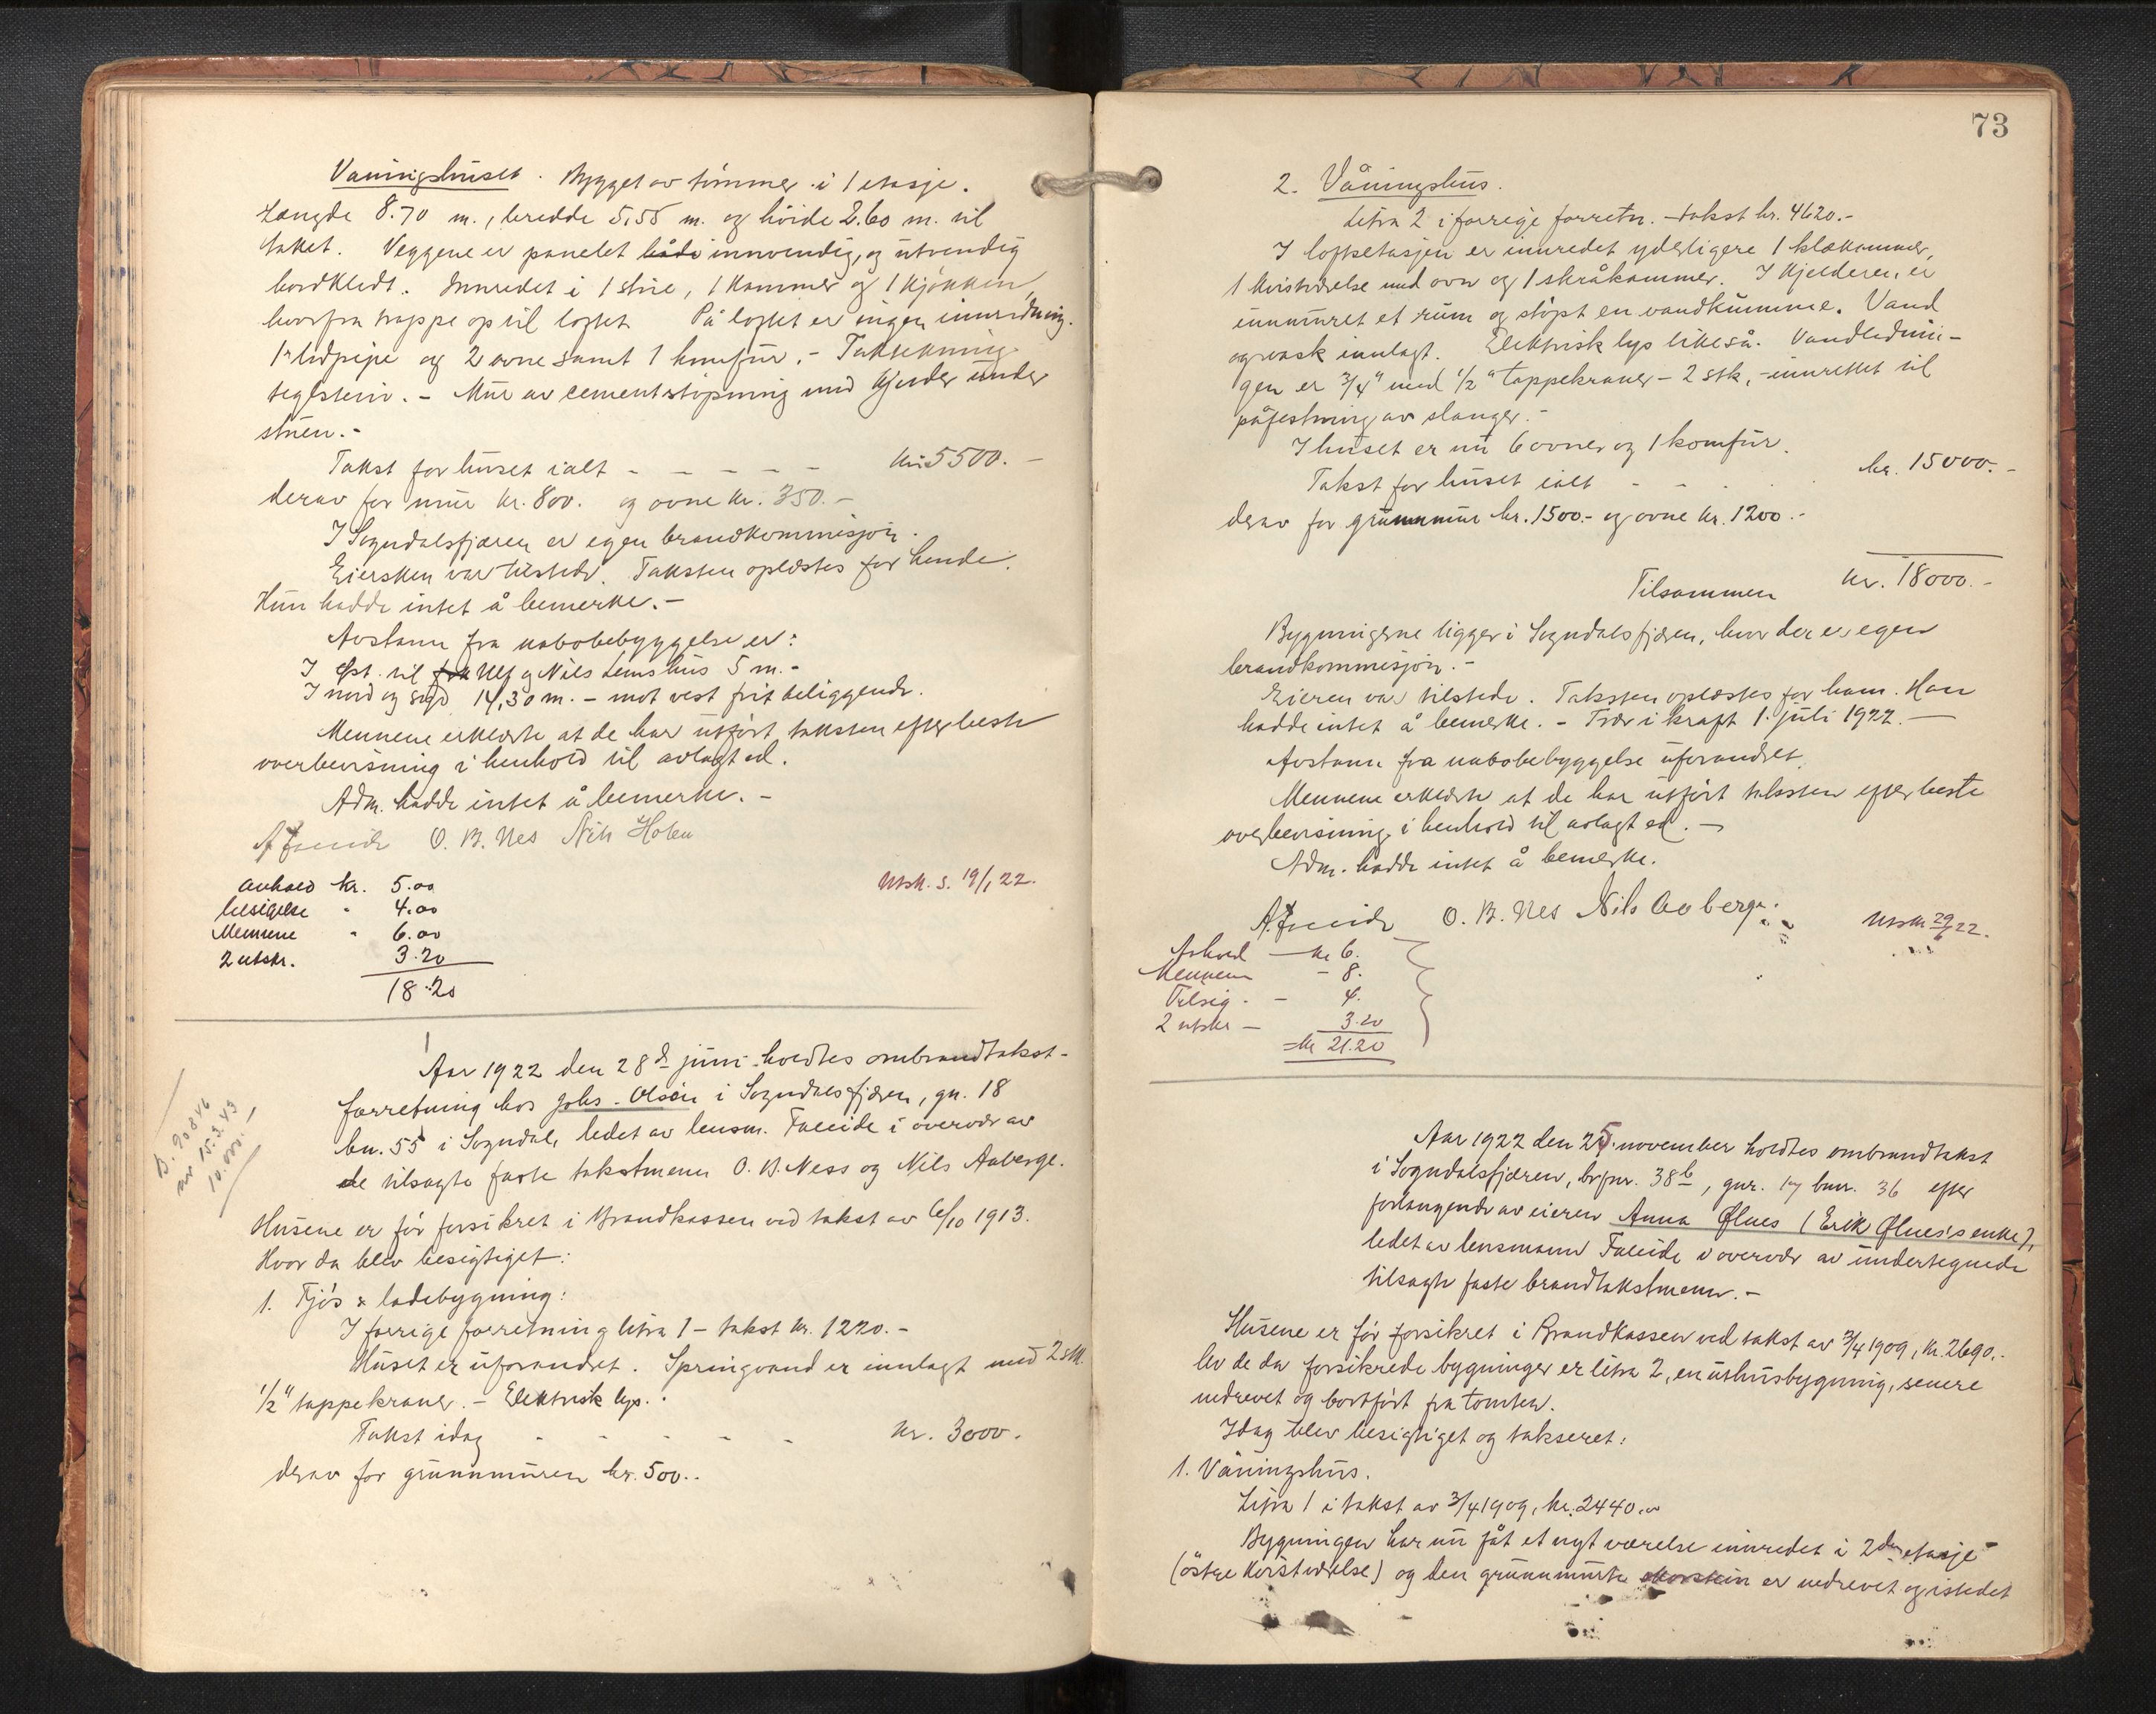 Vaningshuset. Bygget av tømmer i 1 etasje.
Længde 8.70 m., bredde 5,55 m. og høide 2.60 m. til
taket. Veggene er panelet både innvendig, og utvendig
bordklædt. Innredet i 1 stue, 1 kammer og 1 kjøkken,
hvorfra trappe op til loftet. På loftet er ingen innredning.
1 rørpipe og 2 ovne samt 1 komfur. - Taktekning
teglstein. - Mur av cementstøpning med kjelder under
stuen. -
Takst for huset ialt - - - - - kr. 5500. -
derav for mur kr. 800. og ovne kr. 350. -
I Sogndalsfjæren er egen brandkommisjon.
Eiersken var tilstede. Taksten oplæstes for hende.
Hun hadde intet å bemerke. -
Avstann fra nabobebyggelse er:
I øst til Ulf og Nils Lems hus 5 m. -
I nord og syd 14,30 m. - mot vest frit beliggende.
Mennene erklærte at de har utført taksten efter beste
overbevisning i henhold til avlagt ed.
Adm. hadde intet å bemerke. -
A Faleide O. B. Nes Nils Holen
Utsk. s. 19/1 22.
Anhold kr. 5.00
besigelse " 4.00
Mennene " 6.00
2 utskr. 3.20
18.20
Aar 1922 den 28de juni holdtes ombrandtakst-
forretning hos Johs. Olsen i Sogndalsfjæren, gn. 18
bn. 55 i Sogndal, ledet av lensm. Faleide i overvær av
de tilsagte faste takstmenn O. B. Ness og Nils Aaberge.
B. 90846
av 15.3.43
10.000.-
Husene er før forsikret i Brandkassen ved takst av 6/10 1913.
Hvor da blev besigtiget:
1. Fjøs & ladebygning:
I forrige forretning litra 1 - takst kr. 1220. -
Huset er uforandret. Springvand er innlagt med 2 stk.
1/2" tappekraner. - Elektrisk lys.
Takst idag - - - - - kr. 3000.
derav for grunnmuren kr. 500..
73
2. Våningshus.
Litra 2 i forrige forretn. - takst kr. 4620. -
I loftsetasjen er innredet yderligere 1 klækammer,
1 kvistværelse med ovn og 1 skråkammer. I kjelderen er
innmuret et rum og støpt en vandkumme. Vand
og vask innlagt. Elektrisk lys likeså. Vandlednin-
gen er 3/4" med 1/2" tappekraner - 2 stk, - innrettet til
påfestning av slanger. -
I huset er nu 6 ovner og 1 komfur.
Takst for huset ialt - - kr. 15000. -
derav for grunnmur kr. 1500.- og ovne kr. 1200. -
Tilsammen kr. 18000. -
Bygningerne ligger i Sogndalsfjæren, hvor der er egen
brandkommisjon. -
Eieren var tilstede. Taksten oplæstes for ham. Han
hadde intet å bemerke. - Træ i kraft 1. juli 1922. -
Avstann fra nabobebyggelse uforandret.
Mennene erklærte at de har utført taksten efter beste
overbevisning i henhold til avlagt ed. -
Adm. hadde intet å bemerke.
A. Faleide O. B. Nes Nils Aaberge.
Utsk 29/6 22.
Anhold - kr 6.
Mennene - 8.
Besig. - 4.
2 utskr - 3.20
= kr 21.20
Aar 1922 den 25. november holdtes ombrandtakst
i Sogndalsfjæren, br.nr. 38b, gnr. 17 bnr. 36 efter
forlangende av eieren Anna Ølnes (Erik Ølnes's enke),
ledet av lensmann Faleide i overvær av undertegnede
tilsagte faste brandtakstmenn. -
Husene er før forsikret i Brandkassen ved takst av 3/4 1909, kr. 2690. -
Av de da forsikrede bygninger er litra 2, en uthusbygning, senere
nedrevet og bortført fra tomten.
Idag blev besigtiget og takseret:
1. Våningshus.
Litra 1 i takst av 3/4 1909, kr. 2440.00
Bygningen har nu fåt et nyt værelse innredet i 2den etasje
(østre kvistværelse) og den grunnmurte skorstein er nedrevet og istedet